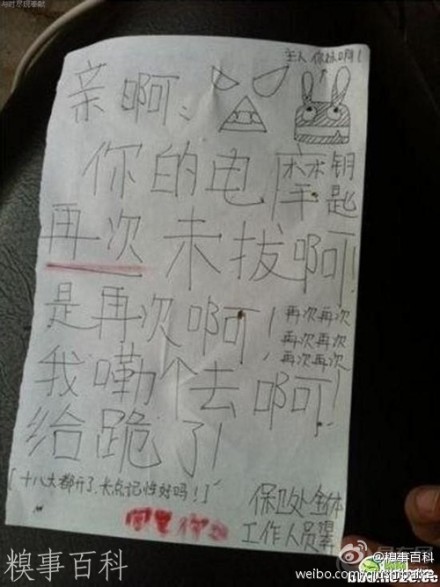 主人 你妹啊！
亲啊：
你的电摩钥匙
再次未拔啊！
是再次啊！
再次再次
再次再次
再次再次
我嘞个去啊！
给跪了！
[十八大都开了,长点记性好吗！]
保卫处全体
工作人员
糗事百科
糗事百科
weibo.com/qiushibaike